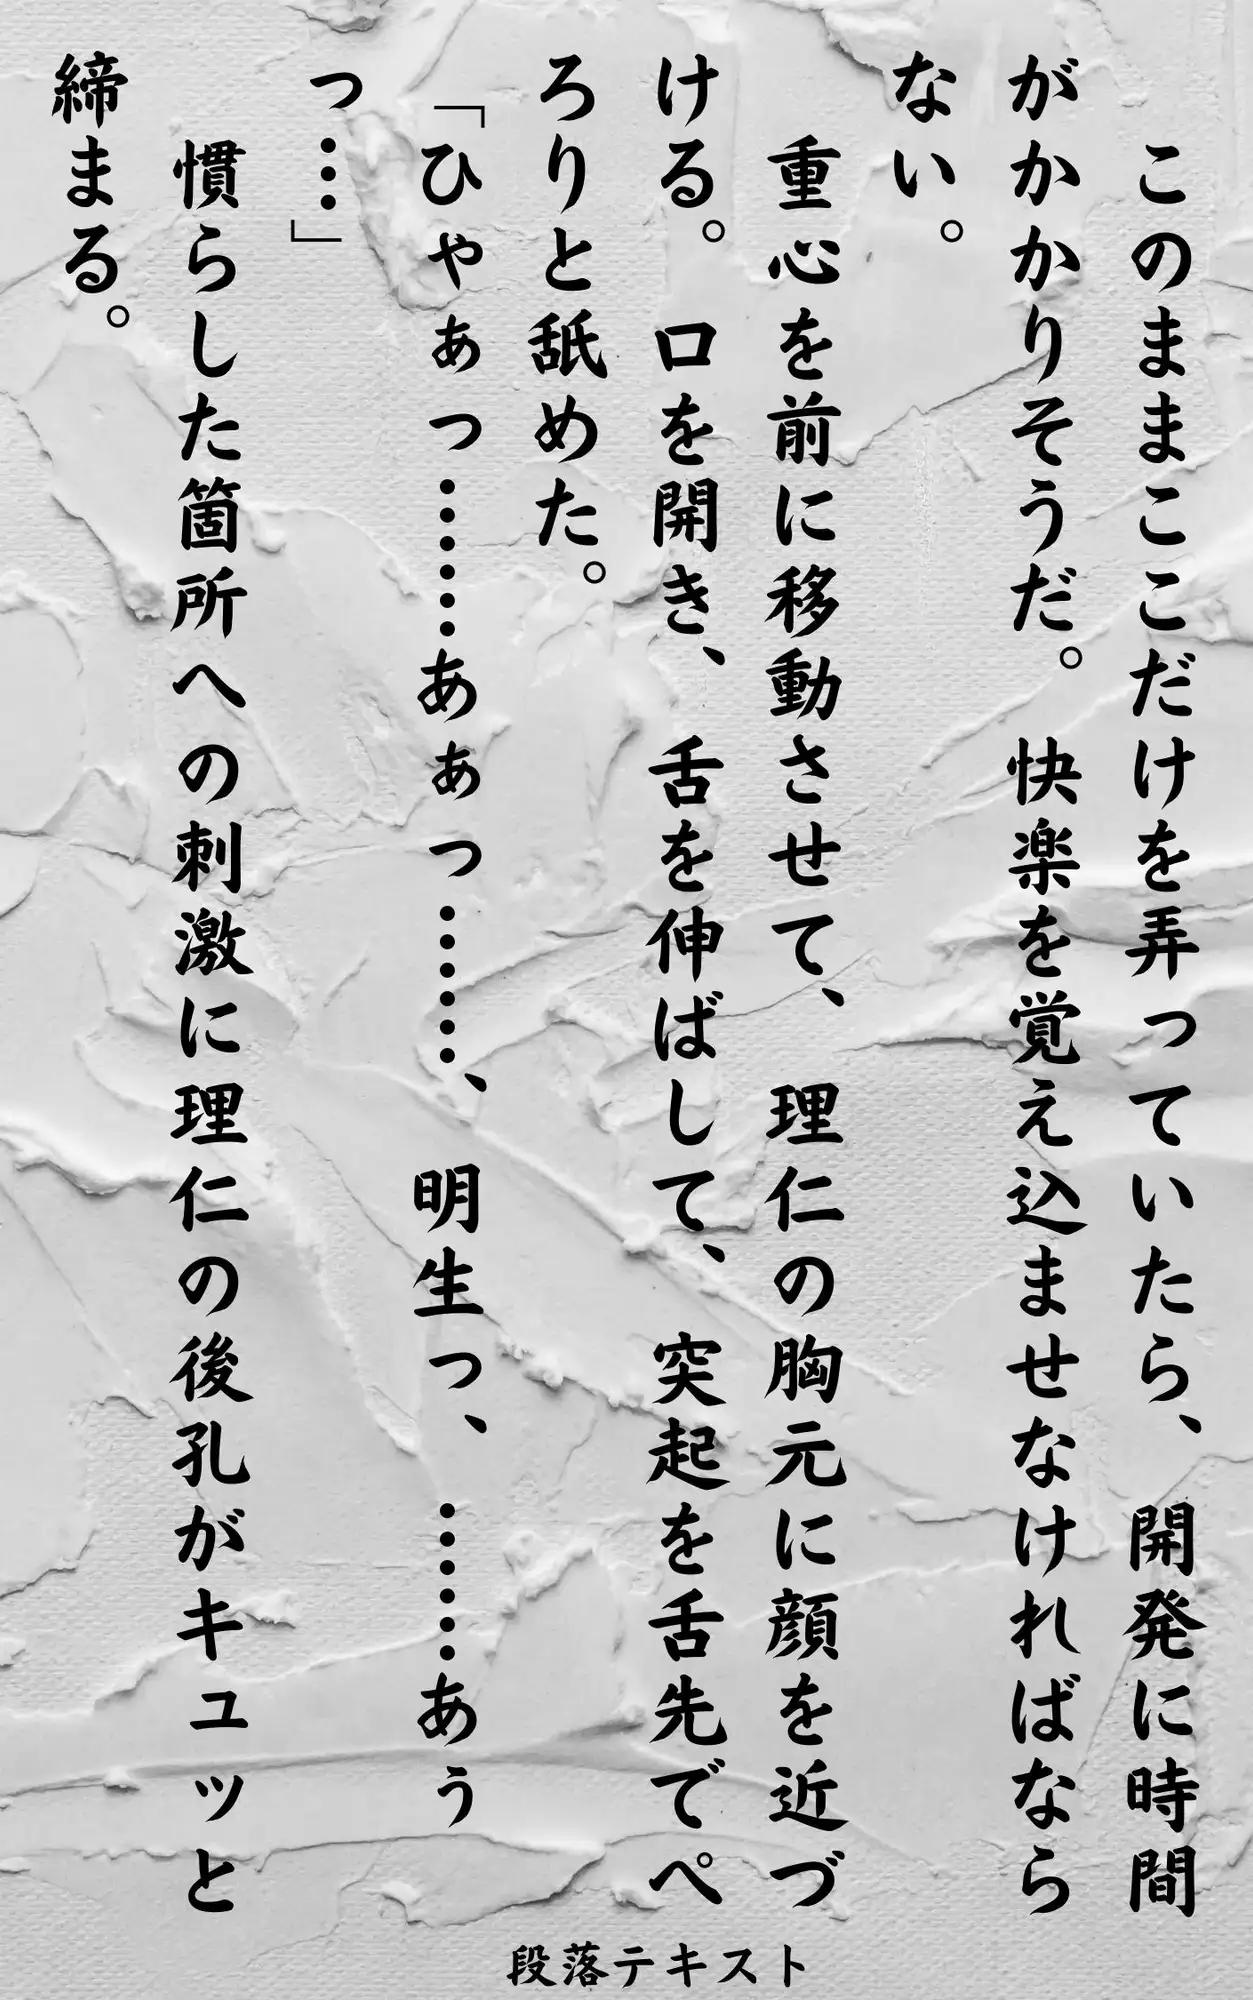 このままここだけを弄っていたら、開発に時間
がかかりそうだ。快楽を覚え込ませなければなら
ない。
　重心を前に移動させて、理仁の胸元に顔を近づ
ける。口を開き、舌を伸ばして、突起を舌先でペ
ろりと舐めた。
「ひゃぁっ………あぁっ……、明生っ、……あぅ
っ…」
　慣らした箇所への刺激に理仁の後孔がキュッと
締まる。
段落テキスト